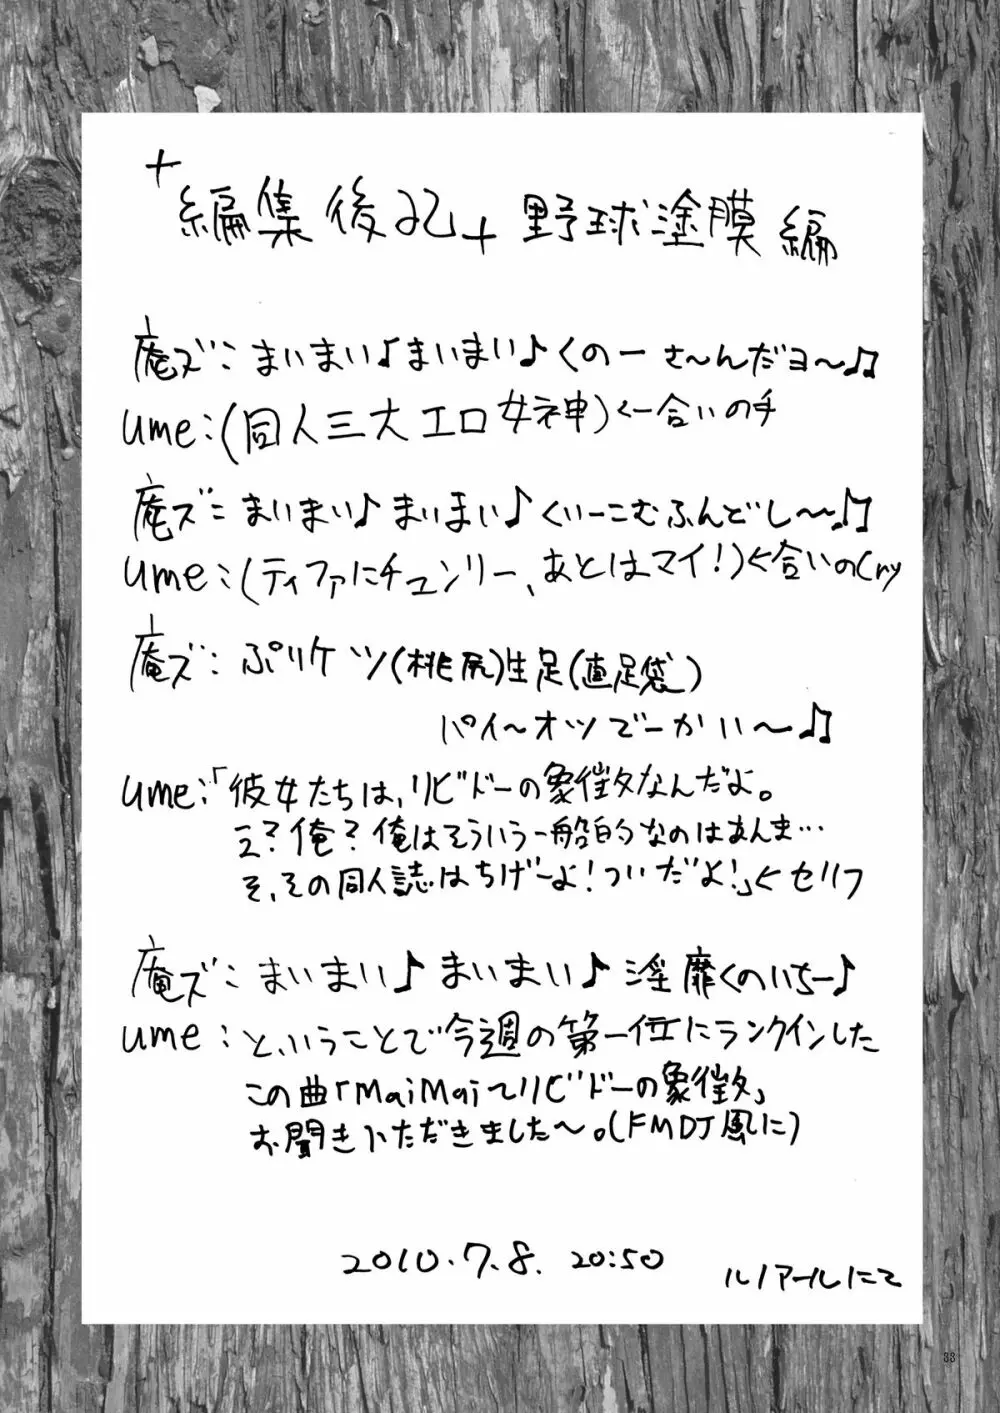 +編集後記+野球塗膜編
庵ズ:まいまい♪まいまい♪くのーさ〜んだヨ〜♫
ume:(同人三大エロ女神)←合いの手
庵ズ:まいまい♪まいまい♪くいーこむふんどし〜♫
ume:(ティファにチュンリー、あとはマイ!)←合いのCry
庵ズ:ぷりケツ(桃尻)生足(直足袋)
パイ〜オツでーかい〜♫
ume:「彼女たちは、リビドーの象徴なんだよ。
え?俺?俺はそういう一般的なのはあんま…
そ、その同人誌はちげーよ!ついだよ!」←セリフ
庵ズ:まいまい♪まいまい♪淫靡くのいちー♪
ume:と、いうことで今週の第一位にランクインした
この曲「MaiMai〜リビドーの象徴」
お聞きいただきました〜。(FMDJ風に)
2010.7.8. 20:50
ルノアールにて
33